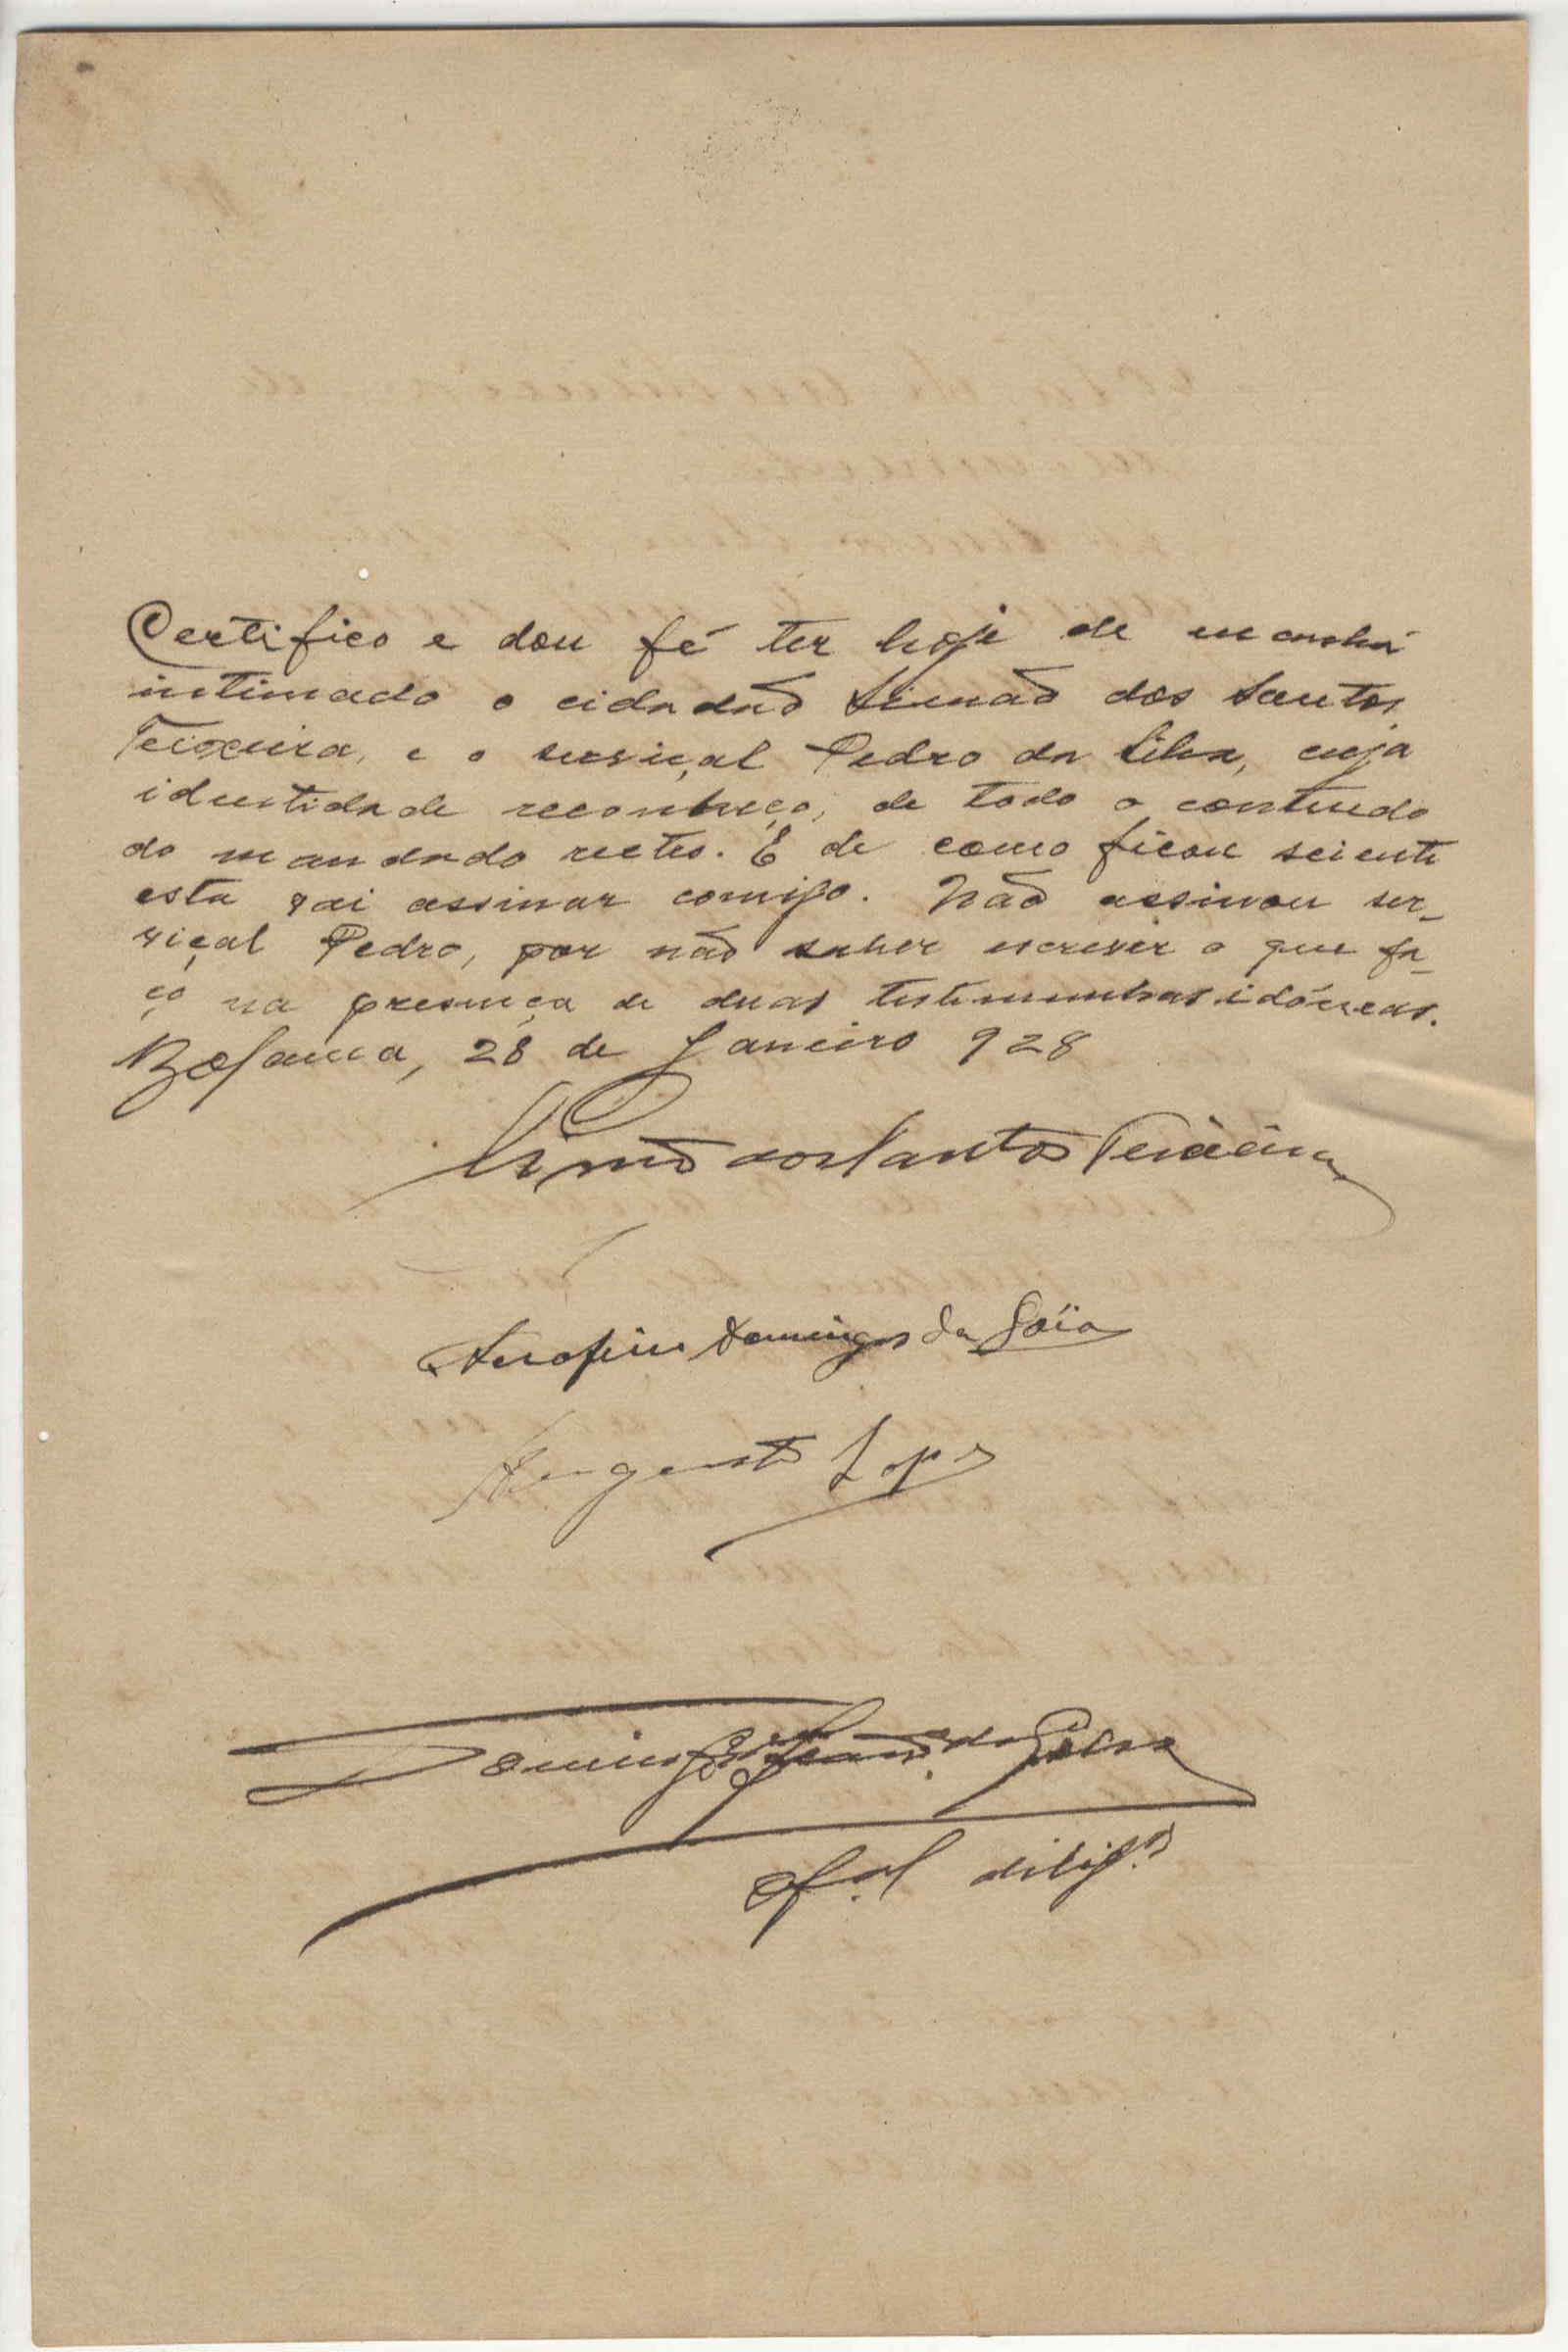 Certifico e dou fé ter hoje de manhã
intimado o cidadão Simão dos Santos
Teixeira, e o serviçal Pedro da Silva, cuja
identidade reconheço, de todo o conteudo
do mandado rectro. E de como ficou sciente
esta vai assinar comigo. Não assinou ser-
viçal Pedro, por não saber escrever o que fa-
ço na presença de duas testimunhas idóneas.
Bolama, 28 de Janeiro 928
Simão dos Santos Teixeira
Serafim Domingos da
Augusto Lopes
Domingos da Silva
Of.al dilig.as